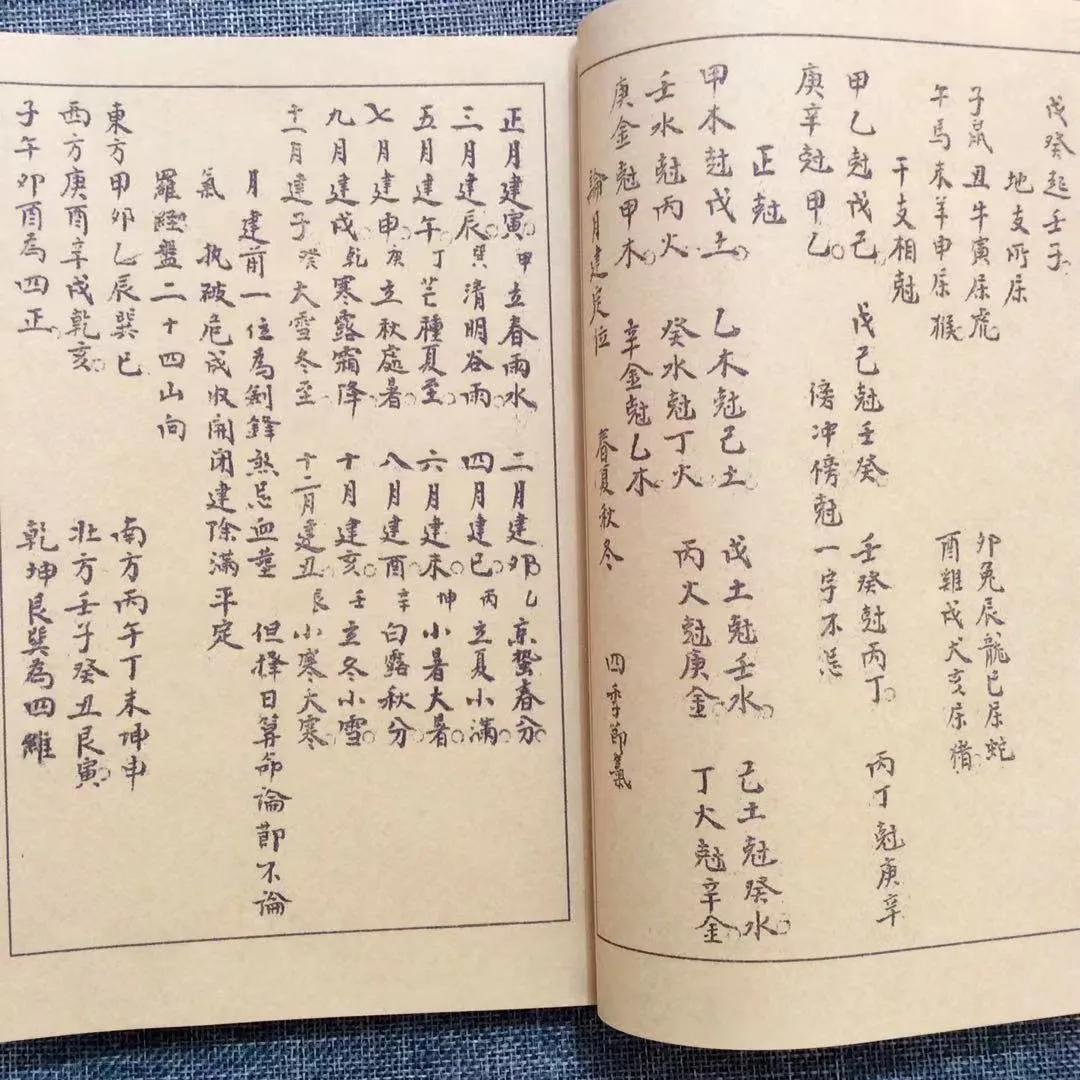 戊癸起壬子
地支所属
子鼠丑牛寅属虎 卯兔辰龍巳属蛇
午馬未羊申属猴 酉雞戌犬亥属猪
干支相尅
甲乙尅戊己 戊己尅壬癸 壬癸尅丙丁 丙丁尅庚辛
庚辛尅甲乙 傍冲傍尅一字不忌
正尅
甲木尅戊土 乙木尅己土 戊土尅壬水 己土尅癸水
壬水尅丙火 癸水尅丁火 丙火尅庚金 丁火尅辛金
庚金尅甲木 辛金尅乙木
論月建定位 春夏秋冬 四季節氣
正月建寅甲立春雨水 二月建卯乙京蟄春分
三月建辰巽清明谷雨 四月建巳丙立夏小滿
五月建午丁芒種夏至 六月建未坤小暑大暑
七月建申庚立秋處暑 八月建酉辛白露秋分
九月建戌乾寒露霜降 十月建亥壬立冬小雪
十一月建子癸大雪冬至 十二月建丑艮小寒大寒
月建前一位為劍鋒煞忌血塟 但擇日算命論節不論
氣 执破危成收開闭建除滿平定
羅經盤二十四山向
東方甲卯乙辰巽巳 南方丙午丁未坤申
西方庚酉辛戌乾亥 北方壬子癸丑艮寅
子午卯酉為四正 乾坤艮巽為四維